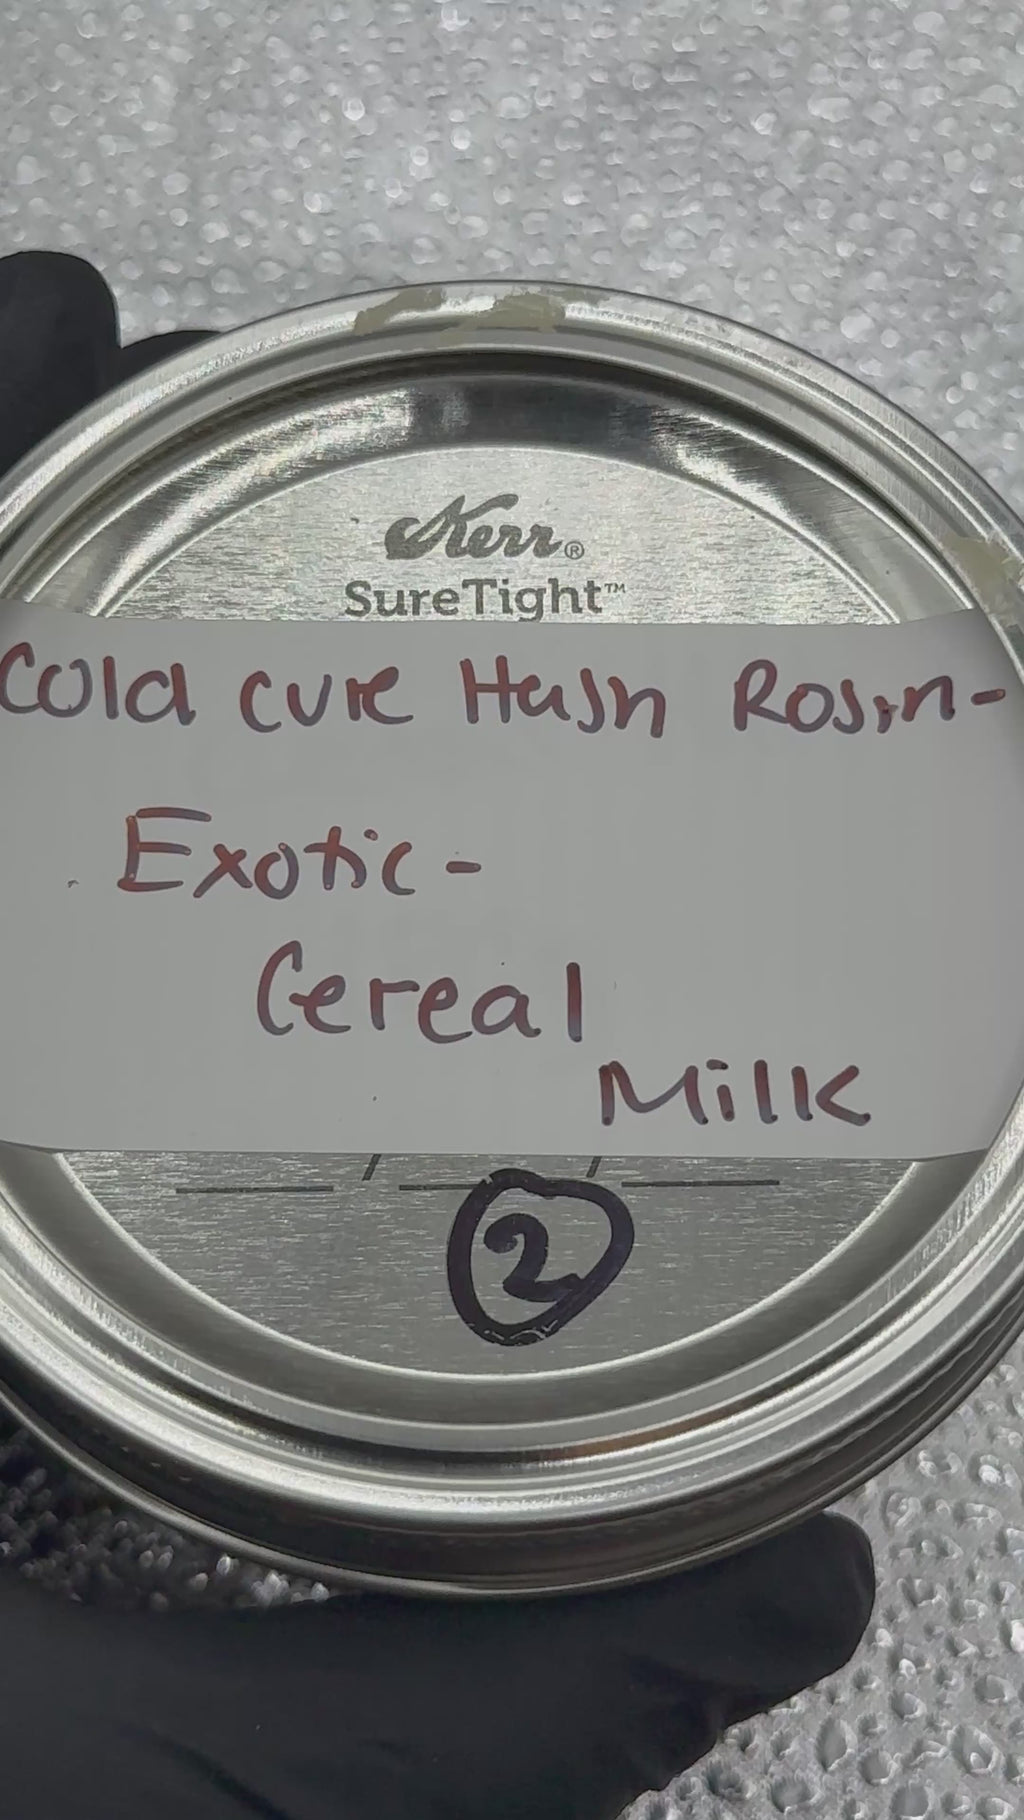 Kerr®
SureTight™
Cold cure Hash Rosin-
Exotic-
Cereal
Milk
2